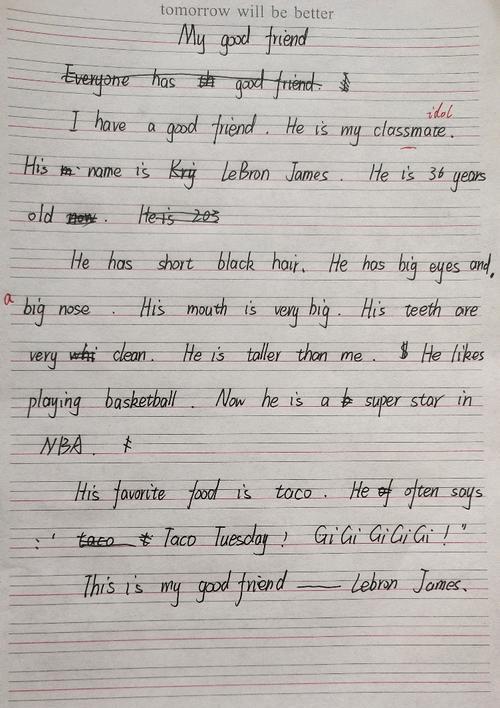 tomorrow will be better
My good friend
Everyone has th good friend. I
idol
I have a good friend. He is my classmate.
His name is LeBron James. He is 36 years
old now. He is 203
He has short black hair. He has big eyes and,
a
big nose. His mouth is very big. His teeth are
very whi clean. He is taller than me. He likes
playing basketball. Now he is a b super star in
NBA.
His favorite food is taco. He of often says
:" taco Taco Tuesday! GiGi GiGiGi!"
This is my good friend —— Lebron James.